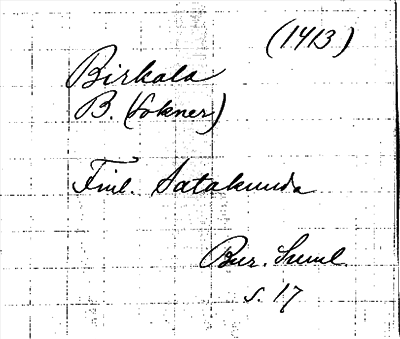 (1413)
Birkala
B. (sokner)
Finl. Satakunda
Bur. Suml.
s. 17